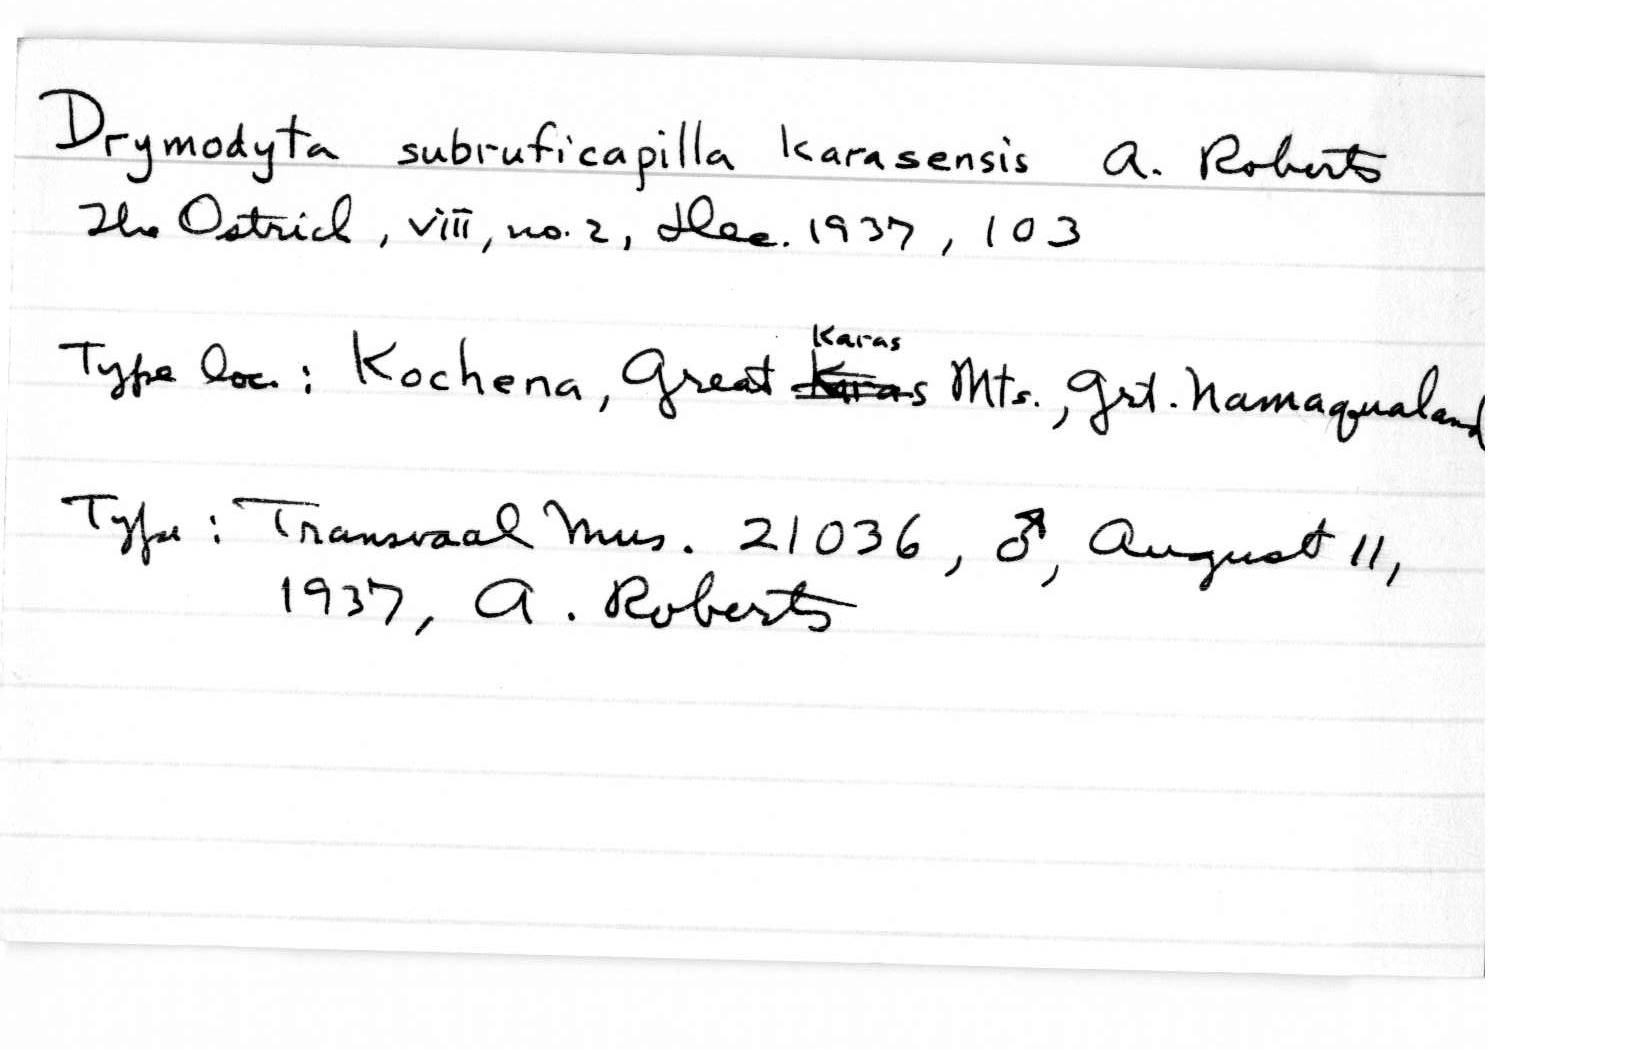 Drymodyta subruficapilla karasensis A. Roberts
The Ostrich, viii, no. 2, Dec. 1937, 103
Karas
Type loc. : Kochena, Great Karas Mts., Grt. Namaqualand
Type : Transvaal Mus. 21036, ♂, August 11,
1937, A. Roberts